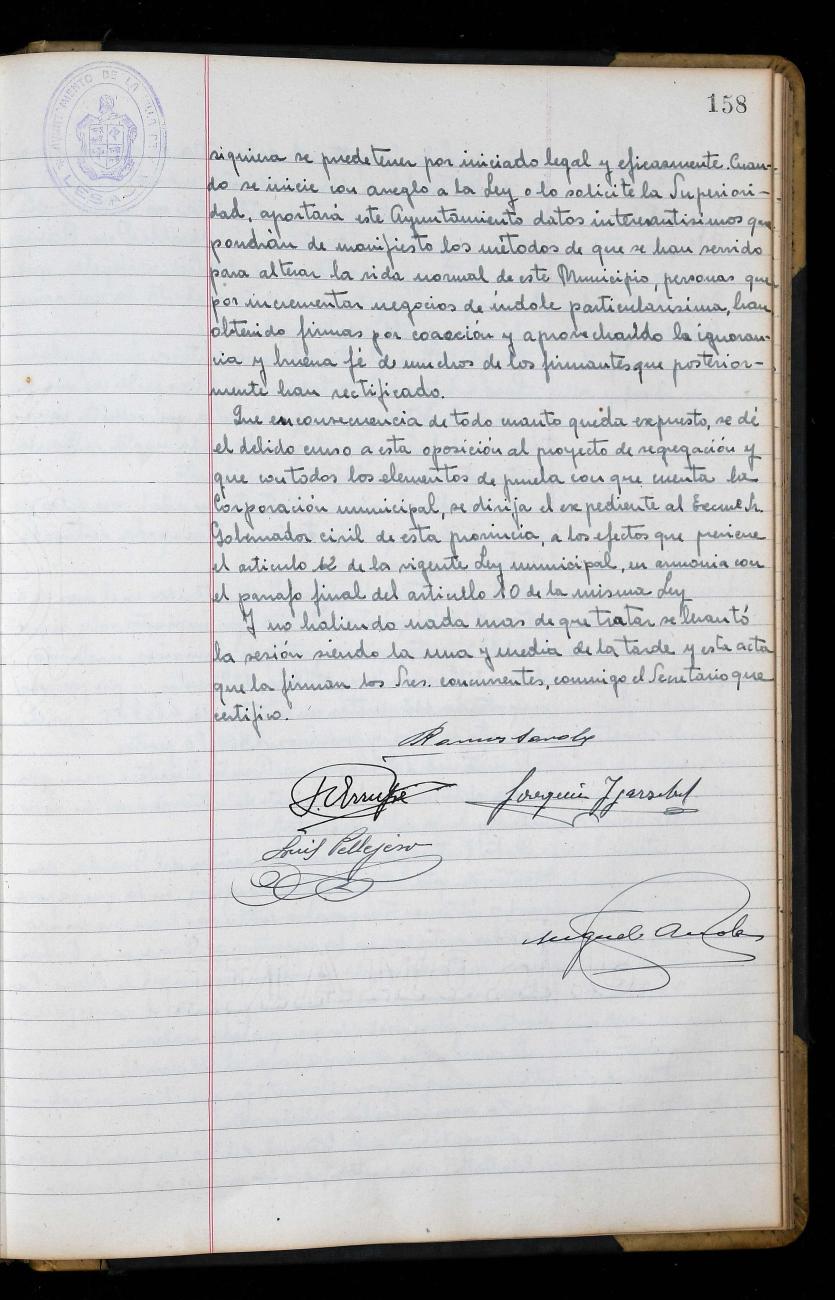 158
AYUNTAMIENTO DE LA VILLA DE
LESACA
siquiera se puede tener por iniciado legal y eficasmente. Cuan-
do se inicie con areglo a la Ley o lo solicite la Superiori-
dad, aportará este Ayuntamiento datos interesantisimos que
pondrán de manifiesto los métodos de que se han servido
para alterar la vida normal de este Municipio, personas que
por incrementar negocios de índole particularisima, han
obtenido firmas por coacción y aprovechando la ignoran-
cia y buena fé de muchos de los firmantes que posterior-
mente han rectificado.
Que en consecuencia de todo cuanto queda expuesto, se dé
el debido curso a esta oposición al proyecto de segregación y
que con todos los elementos de prueba con que cuenta la
Corporación municipal, se dirija el expediente al Excmo Sr.
Gobernador civil de esta provincia, a los efectos que previene
el articulo 12 de la vigente Ley municipal, en armonia con
el parrafo final del articulo 10 de la misma Ley
Y no habiendo nada mas de que tratar se levantó
la sesión siendo la una y media de la tarde y esta acta
que la firman los Sres. concurrentes, conmigo el Secretario que
certifico.
Ramon
Joaquin
Luis Pellejero
Miguel